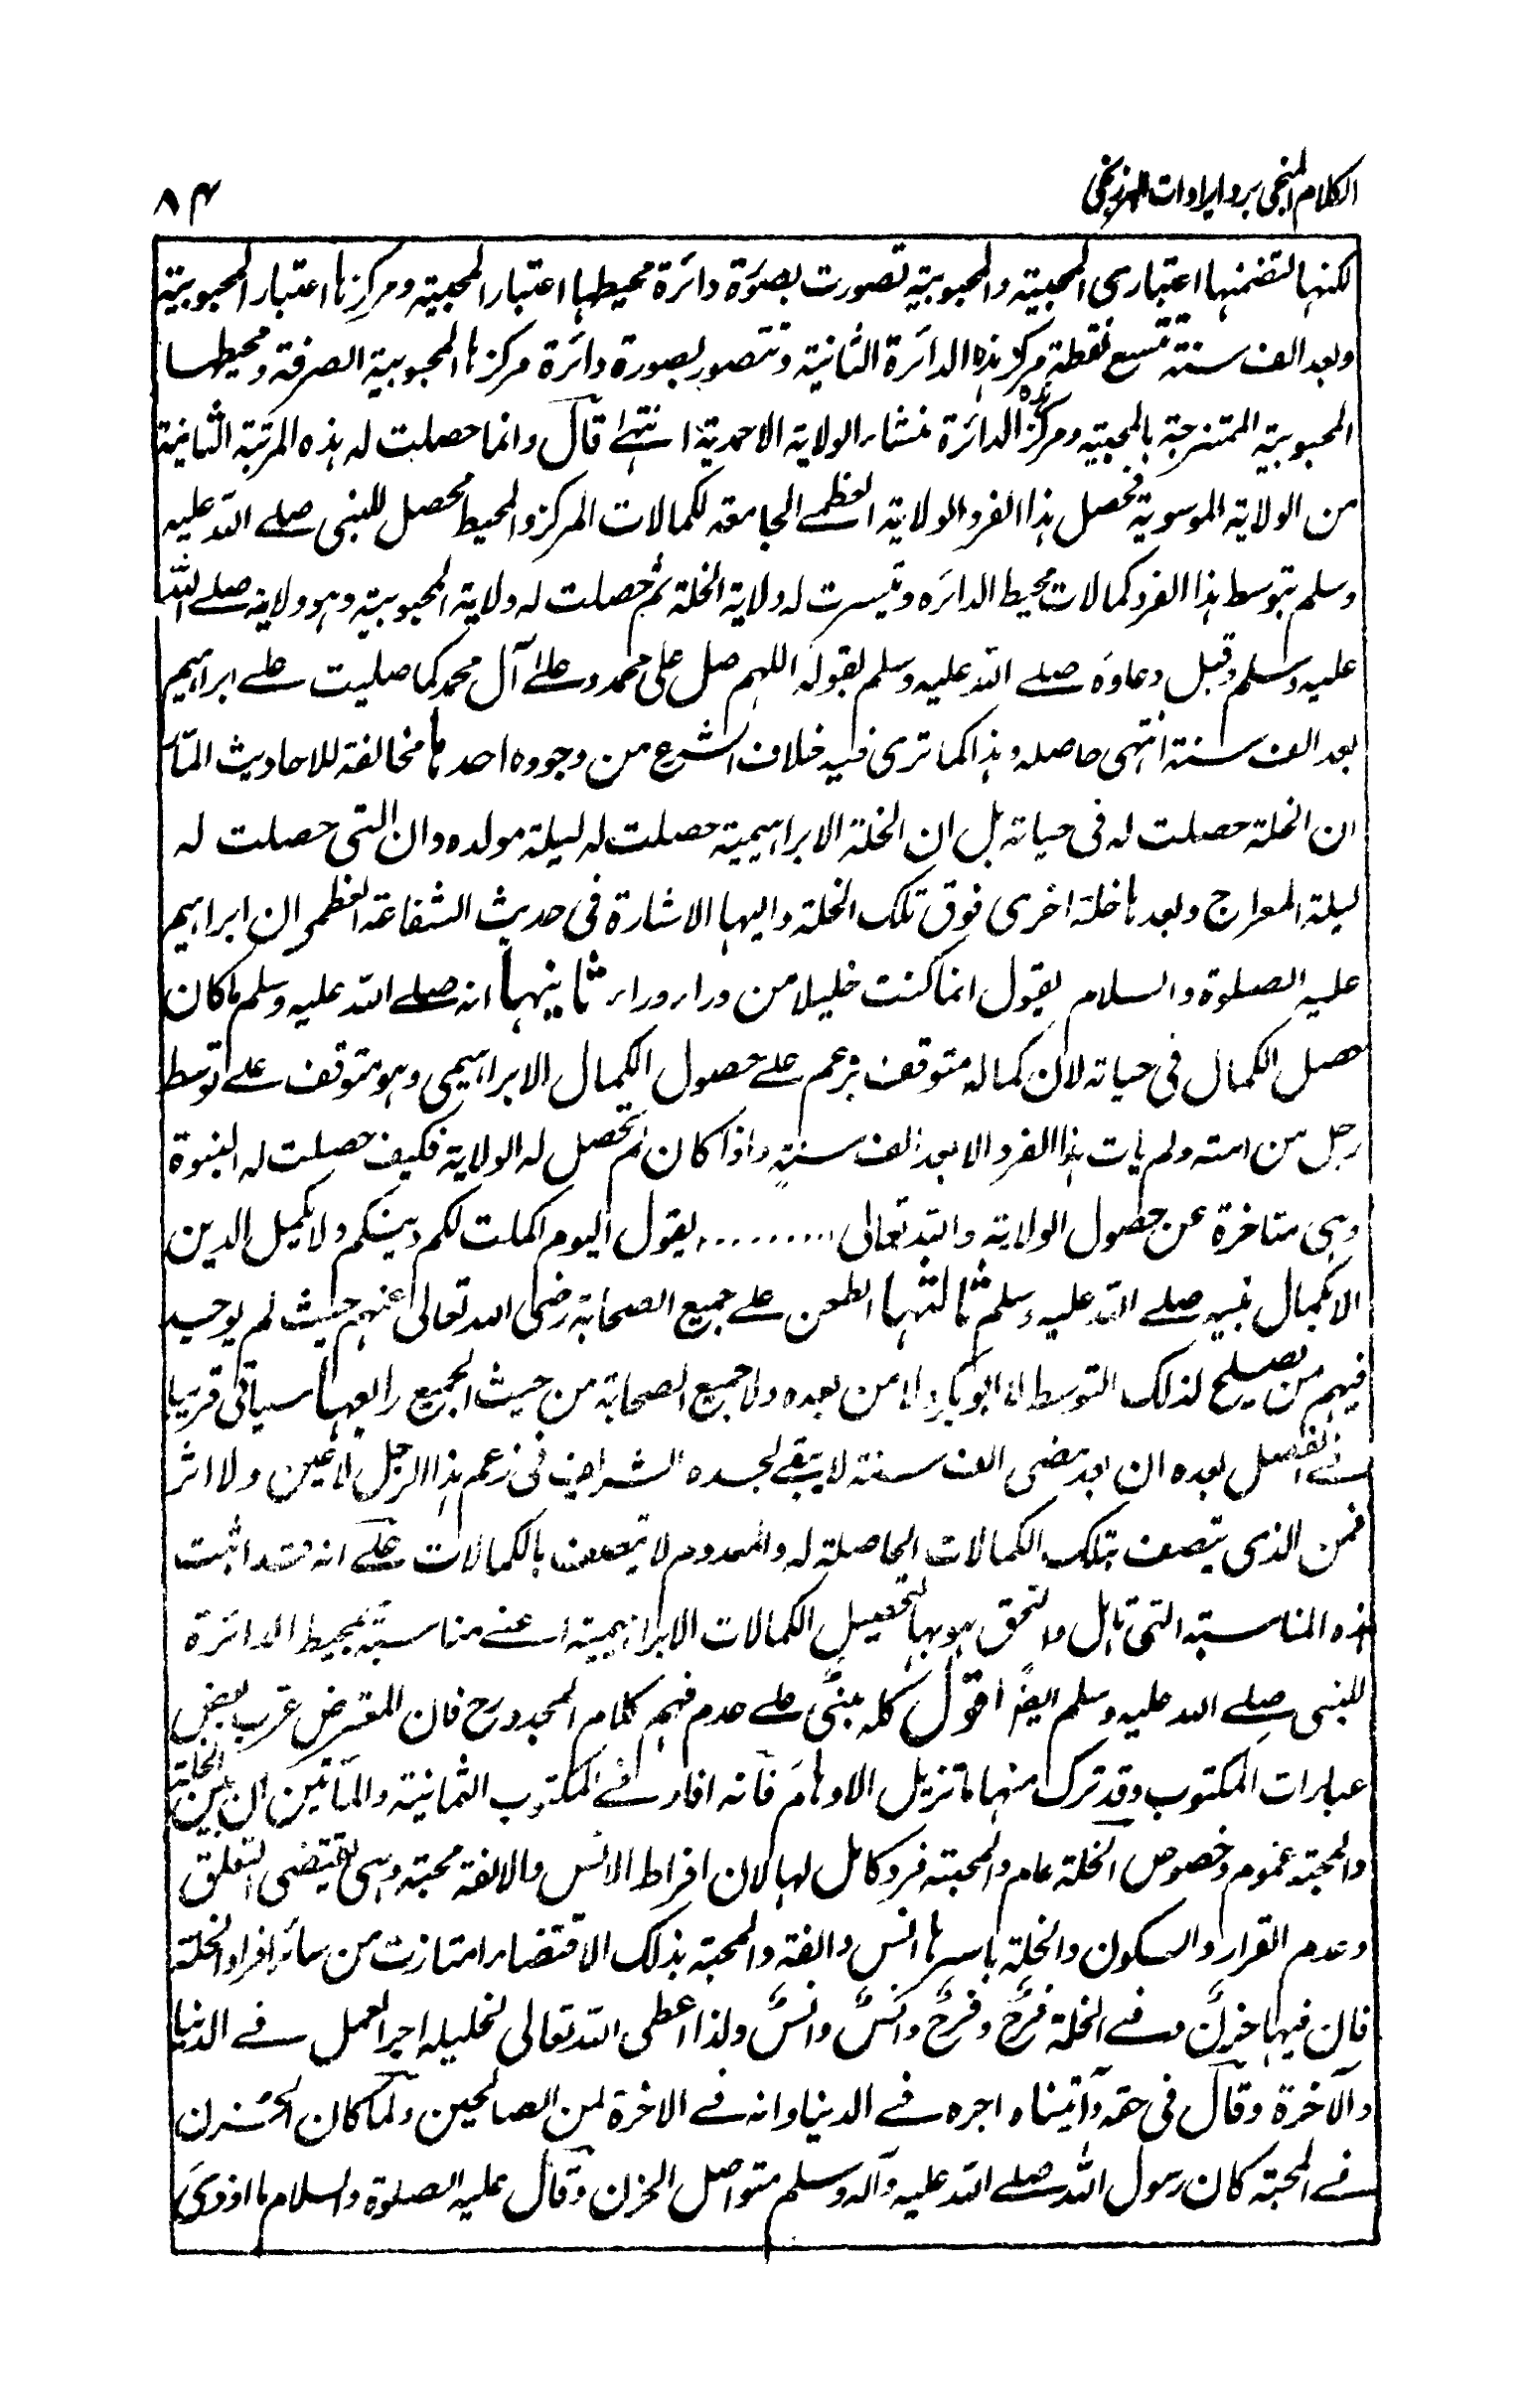 الکلام المنجی برد ایرادات البرزنجی
۸۴
لکنہا لتضمنہا اعتباری المحبیۃ والمحبوبیۃ تصورت بصورۃ دائرۃ محیطہا اعتبار المحبیۃ ومرکزہا اعتبار المحبوبیۃ
وبعد الف سنۃ تتسع نقطۃ مرکز ہذہ الدائرۃ الثانیۃ وتتصور بصورۃ دائرۃ مرکزہا المحبوبیۃ الصرفۃ ومحیطہا
المحبوبیۃ الممتزجۃ بالمحبیۃ ومرکز ہذہ الدائرۃ منشاء الولایۃ الاحمدیۃ انتہے قال وانما حصلت لہ ہذہ المرتبۃ الثانیۃ
من الولایۃ الموسویۃ فحصل ہذا الفرد الولایۃ العظمے الجامعۃ لکمالات المرکز والمحیط محصل للنبی صلے اللہ علیہ
وسلم بتوسط ہذا الفرد کمالات محیط الدائرہ وتیسرت لہ ولایۃ الخلۃ ثم حصلت لہ ولایۃ المحبوبیۃ وہو ولایۃ صلے اللہ
علیہ وسلم وقبل دعاوہ صلے اللہ علیہ وسلم لقولہ اللہم صل علی محمد وعلے آل محمد کما صلیت علے ابراہیم
بعد الف سنۃ انتہی حاصلہ وہذا کما تری فیہ خلاف الشرع من وجوہ احدہا مخالفۃ للاحادیث المآر
ان الخلۃ حصلت لہ فی حیاتہ بل ان الخلۃ الابراہیمیۃ حصلت لہ لیلۃ مولدہ وان التی حصلت لہ
لیلۃ المعراج وبعدہا خلۃ اخری فوق تلک الخلۃ والیہا الاشارۃ فی حدیث الشفاعۃ العظمے ان ابراہیم
علیہ الصلوۃ والسلام یقول انما کنت خلیلا من وراء وراء ثانیہا انہ صلے اللہ علیہ وسلم ما کان
حصل الکمال فی حیاتہ لان کمالہ متوقف بزعم علے حصول الکمال الابراہیمی وہو متوقف علے توسط
رجل من امتہ ولم یات ہذا الفرد الا بعد الف سنۃٍ واذا کان لم تحصل لہ الولایۃ فکیف حصلت لہ النبوۃ
وہی متاخرۃ عن حصول الولایۃ واللہ تعالی ......... یقول الیوم اکملت لکم دینکم ولا یکمل الدین
الا بکمال نبیہ صلے اللہ علیہ وسلم ثالثہا الطعن علے جمیع الصحابۃ رضی اللہ تعالی عنہم حیث لم یوجد
فیہم من یصلح لذلک التوسط لا ابو بکر ولا من بعدہ ولا جمیع الصحابۃ من حیث الجمیع رابعہا سیاتی قریبا
فے الفصل بعدہ ان بعد مضی الف سنۃ لا یبقے لجسدہ الشریف فی زعم ہذا الرجل لا عین ولا اثر
فمن الذی یتصف بتلک الکمالات الحاصلۃ لہ والمعدوم لا یتصف بالکمالات علے انہ قد اثبت
ہذہ المناسبۃ التی تاہل ہو بہا لتحصیل الکمالات الابراہیمیۃ اعنے مناسبۃ بمحیط الدائرۃ
للنبی صلے اللہ علیہ وسلم ایضًا اقول کلہ مبنیٌّ علے عدم فہم کلام المجدد رح فان المعترض عرب بعض
عبارات المکتوب وقد ترک منہا ما تزیل الاوہام فانہ افاد فے المکتوب الثمانیۃ والمأتین ان بین الخلۃ
والمحبۃ عموم وخصوص الخلۃ عام والمحبۃ فرد کامل لہا لان افراط الانس والالفۃ محبۃ وہی تقتضی التعلق
وعدم القرار والسکون والخلۃ باسرہا انس والفۃ والمحبۃ بذلک الاقتضاء امتازت من سائر افراد الخلۃ
فان فیہا حزنٌ وفے الخلۃ فرحٌ وفرحٌ وانسٌ وانسٌ ولذا اعطی اللہ تعالی لخلیلہ اجر العمل فے الدنیا
والآخرۃ وقال فی حقہ وآتیناہ اجرہ فے الدنیا وانہ فے الاخرۃ لمن الصالحین ولما کان الحزن
فے المحبۃ کان رسول اللہ صلے اللہ علیہ وآلہ وسلم متواصل الحزن وقال علیہ الصلوۃ والسلام ما اوذیَ